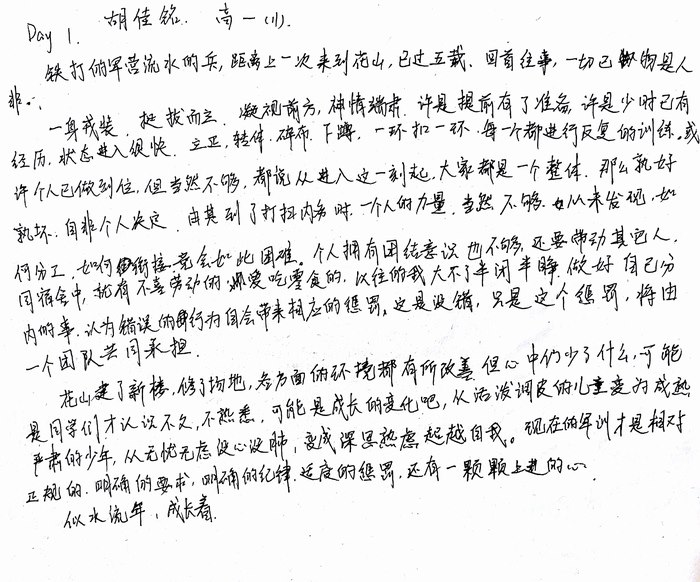 Day 1. 胡佳铭. 高一(1).
铁打的军营流水的兵，距离上一次来到花山，已过五载. 回首往事，一切已物是人
非...
一身戎装. 挺拔而立. 凝视前方，神情端肃. 许是提前有了准备，许是少时已有
经历，状态进入很快. 立正，转体，碎布，下蹲，一环扣一环. 每一个都进行反复的训练。或
许个人已做到位，但当然不够，都说从进入这一刻起，大家都是一个整体. 那么孰好
孰坏. 自非个人决定. 由其到了打扫内务时. 一个人的力量. 当然不够. 从未发现，如
何分工，如何衔接竟会如此困难。个人拥有团结意识也不够，还要带动其它人，
同宿舍中，就有不喜劳动的，爱吃零食的，以往的我大不了半闭半睁，做好自己分
内的事. 认为错误的行为自会带来相应的惩罚。这是没错，只是这个惩罚，将由
一个团队共同承担.
花山建了新楼，修了场地，各方面的环境都有所改善，但心中仍少了什么，可能
是同学们才认识不久，不熟悉，可能是成长的变化吧，从活泼调皮的儿童变为成熟
严肃的少年，从无忧无虑没心没肺，变成深思熟虑超越自我。现在的军训才是相对
正规的. 明确的要求，明确的纪律，适度的惩罚. 还有一颗颗上进的心.
似水流年，成长着.